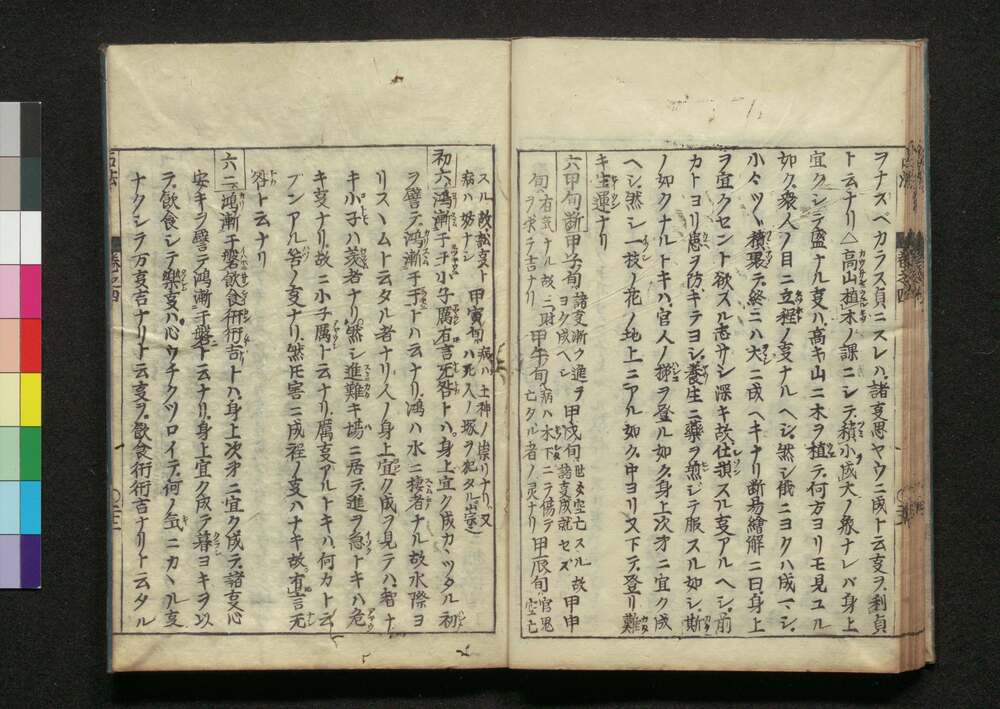 ヲナスベカラス貞ニスレハ諸亥思ヤウニ成ト云亥ヲ利貞
ト云ナリ△高山植木ノ課ニシテ積小成大ノ象ナレバ身上
宜クシテ盛ナル亥ハ高キ山ニ木ヲ植テ何方ヨリモ見ユル
如ク衆人ノ目ニ立程ノ亥ナルヘシ然シ俄ニヨクハ成マシ
小々ツヽ積聚テ終ニハ大ニ成ヘキナリ断易繪解ニ曰身上
ヲ宜クセント欲スル志サシ深キ故仕損スル亥アルヘシ前
カトヨリ患ヲ防キテヨシ養生ニ藥ヲ煎ジテ服スル如シ斯
ノ如クナルトキハ官人ノ梯ヲ登ル如ク身上次才ニ宜ク成
ヘシ然シ一枝ノ花ノ地上ニアル如ク中ヨリ又下テ登リ難
キ生運ナリ
六甲旬断 甲子旬 諸亥漸々進ヲヨク成ヘシ 甲戌旬 世爻空亡スル故諸亥成就セズ 甲申
旬 有気ナル故二 財ヲ求テ吉ナリ 甲午旬 病ハ木下ニテ傷テ亡タル者ノ灵ナリ 甲辰旬 官鬼空亡
スル故訟亥ト病ハ妨ナシ 甲寅旬 病ハ土神ノ祟リナリ又ハ死人ノ塚ヲ犯タル祟
初六鴻漸于干小子厲有言无咎トハ身上宜ク成カヽツタル初
ヲ譬テ鴻漸于干トハ云ナリ鴻ハ水ニ棲者ナル故水際ヨ
リスヽムト云タル者ナリ人ノ身上宜ク成ヲ見テハ者ナ
キ小子ハ羨者ナリ然シ進難キ場ニ居テ進ヲ急トキハ危
キ亥ナリ故ニ小子厲ト云ナリ厲亥アルトキハ何カト云
ブンアル筈ノ亥ナリ然𪜈害ニ成程ノ亥ハナキ故有言无
咎ト云ナリ
六二鴻漸于磐飲食衎衎吉トハ身上次才ニ宜ク成テ諸亥心
安キヲ譬テ鴻漸于磐ト云ナリ身上宜ク成テ暮ヨキヲ以
テ飲食シテ樂亥ハ心ウチクツロイテ何ノ気ニカヽル亥
ナクシテ万亥吉ナリト云亥ヲ飲食衎衎吉ナリト云タル